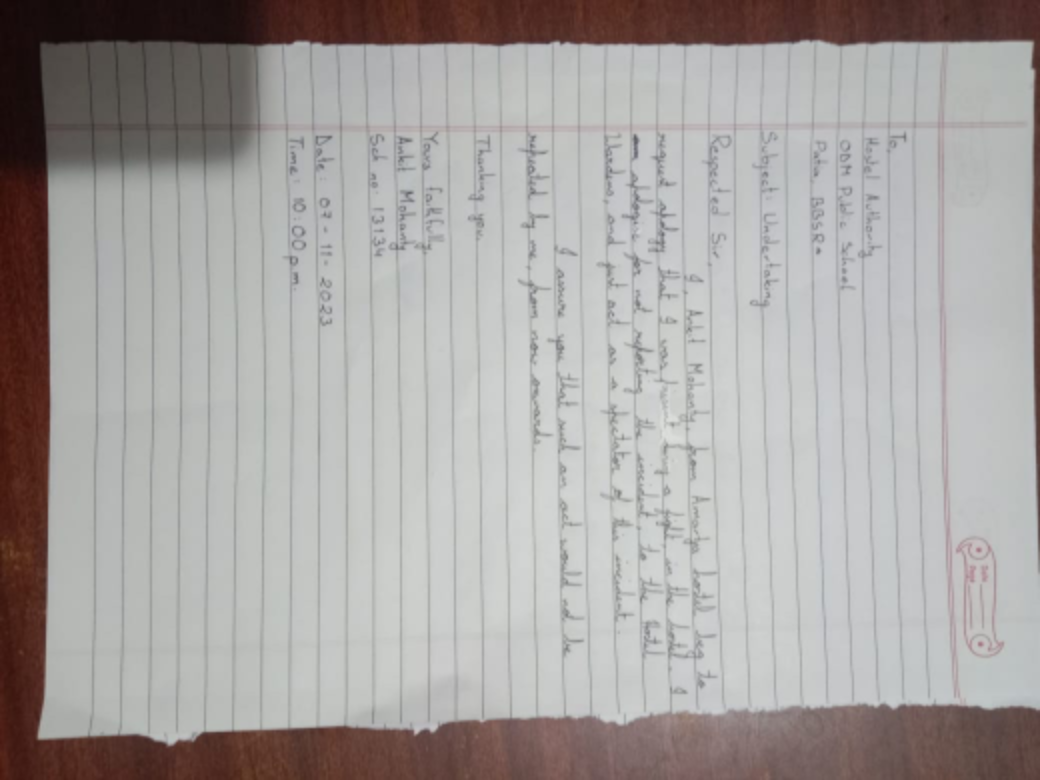 To,
Hostel Authority
ODM Public School
Patia, BBSR.
Subject: Undertaking
Respected Sir,
I, Ankit Mohanty, from Amartya hostel beg to
request apology that I was present a fight, in the hostel. I
apologise for not reporting the incident, to the hostel
Wardens, and just act as a spectator of this incident.
I assure you that such an act would not be
repeated by me, from now onwards.
Thanking you.
Yours faithfully,
Ankit Mohanty
Sch no: 13134
Date: 07-11-2023
Time: 10:00 p.m.
Date
Page